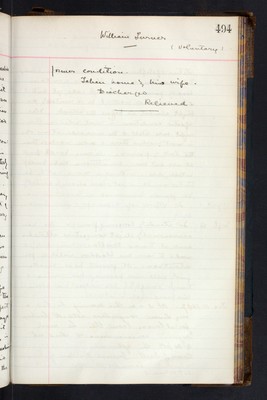 494
William Turner
(Voluntary)
former condition.
Taken home by his wife.
Discharged
Relieved.